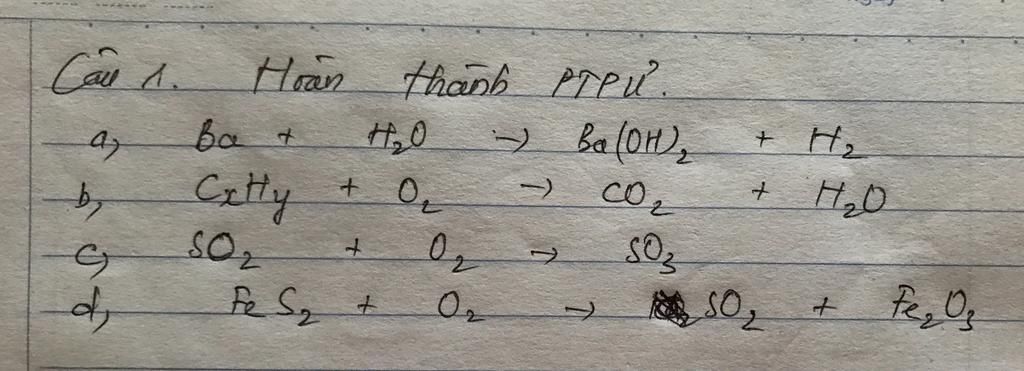 Câu 1. Hoàn thành PTPƯ.
a, Ba + H₂O → Ba(OH)₂ + H₂
b, CxHy + O₂ → CO₂ + H₂O
c, SO₂ + O₂ → SO₃
d, FeS₂ + O₂ → SO₂ + Fe₂O₃